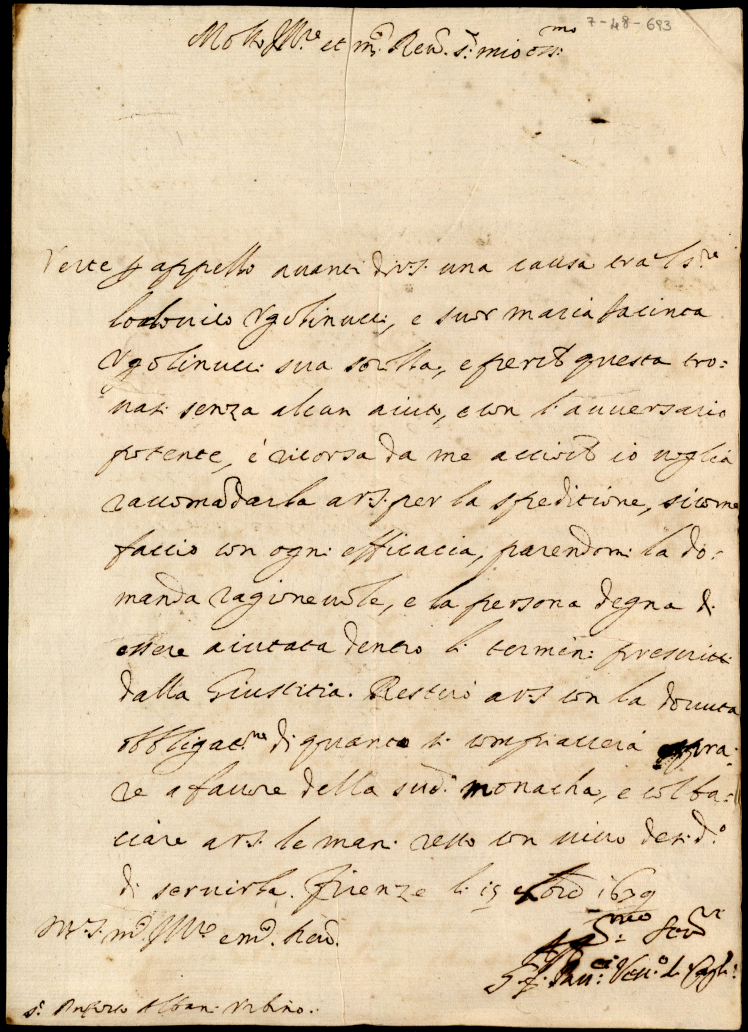 7-48-693
Molto Ill.re et m.to Rev. s.r mio oss.mo
Verte p appello auanti di V.S. una causa tra 'l s.re
lodouico Vgolinucci, e suor maria Jacinta
Vgolinucci sua sorella, e perche questa tro=
uasi senza alcun aiuto, e con l'auuersario
potente, è ricorsa da me accioche io uoglia
raccomādarla a V.S. per la speditione, sicome
faccio con ogni efficacia, parendomi la do=
manda ragioneuole, e la persona degna di
essere aiutata dentro li termini prescritti
dalla Giustitia. Resterò a V.S. con la douuta
obbligat.ne di quanto si compiacerà opra=
re a fauore della sud.a monacha, e col ba=
ciare a V.S. le mani resto con uiuo desid.o
di seruirla. Firenze li 15 1639
Di V.S. m.to Ill.re e m.to Rev.
Ser.re
Vesc.o di Cagli
s.r Albani Urbino.